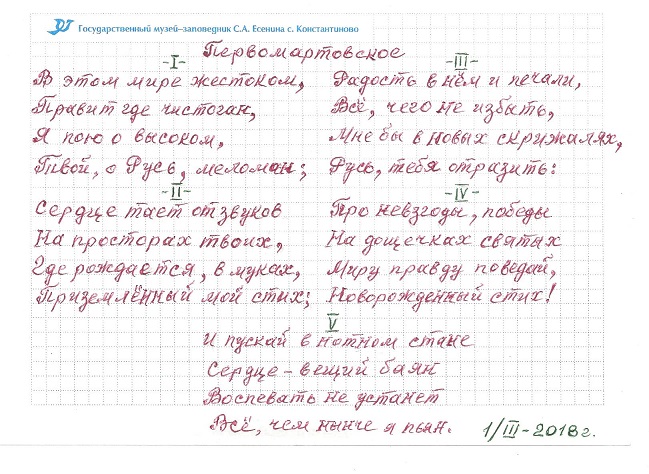 Государственный музей–заповедник С.А. Есенина с. Константиново
Первомартовское
-I-
В этом мире жестоком,
Правит где чистоган,
Я пою о высоком,
Твой, о Русь, меломан;
-II-
Сердце тает от звуков
На просторах твоих,
Где рождается, в муках,
Приземлённый мой стих;
-III-
Радость в нём и печали,
Всё, чего не избыть,
Мне бы в новых скрижалях,
Русь, тебя отразить:
-IV-
Про невзгоды, победы
На дощечках святых
Миру правду поведай,
Новорожденный стих!
V
И пускай в нотном стане
Сердце – вещий баян
Воспевать не устанет
Всё, чем нынче я пьян.
1/III-2018г.